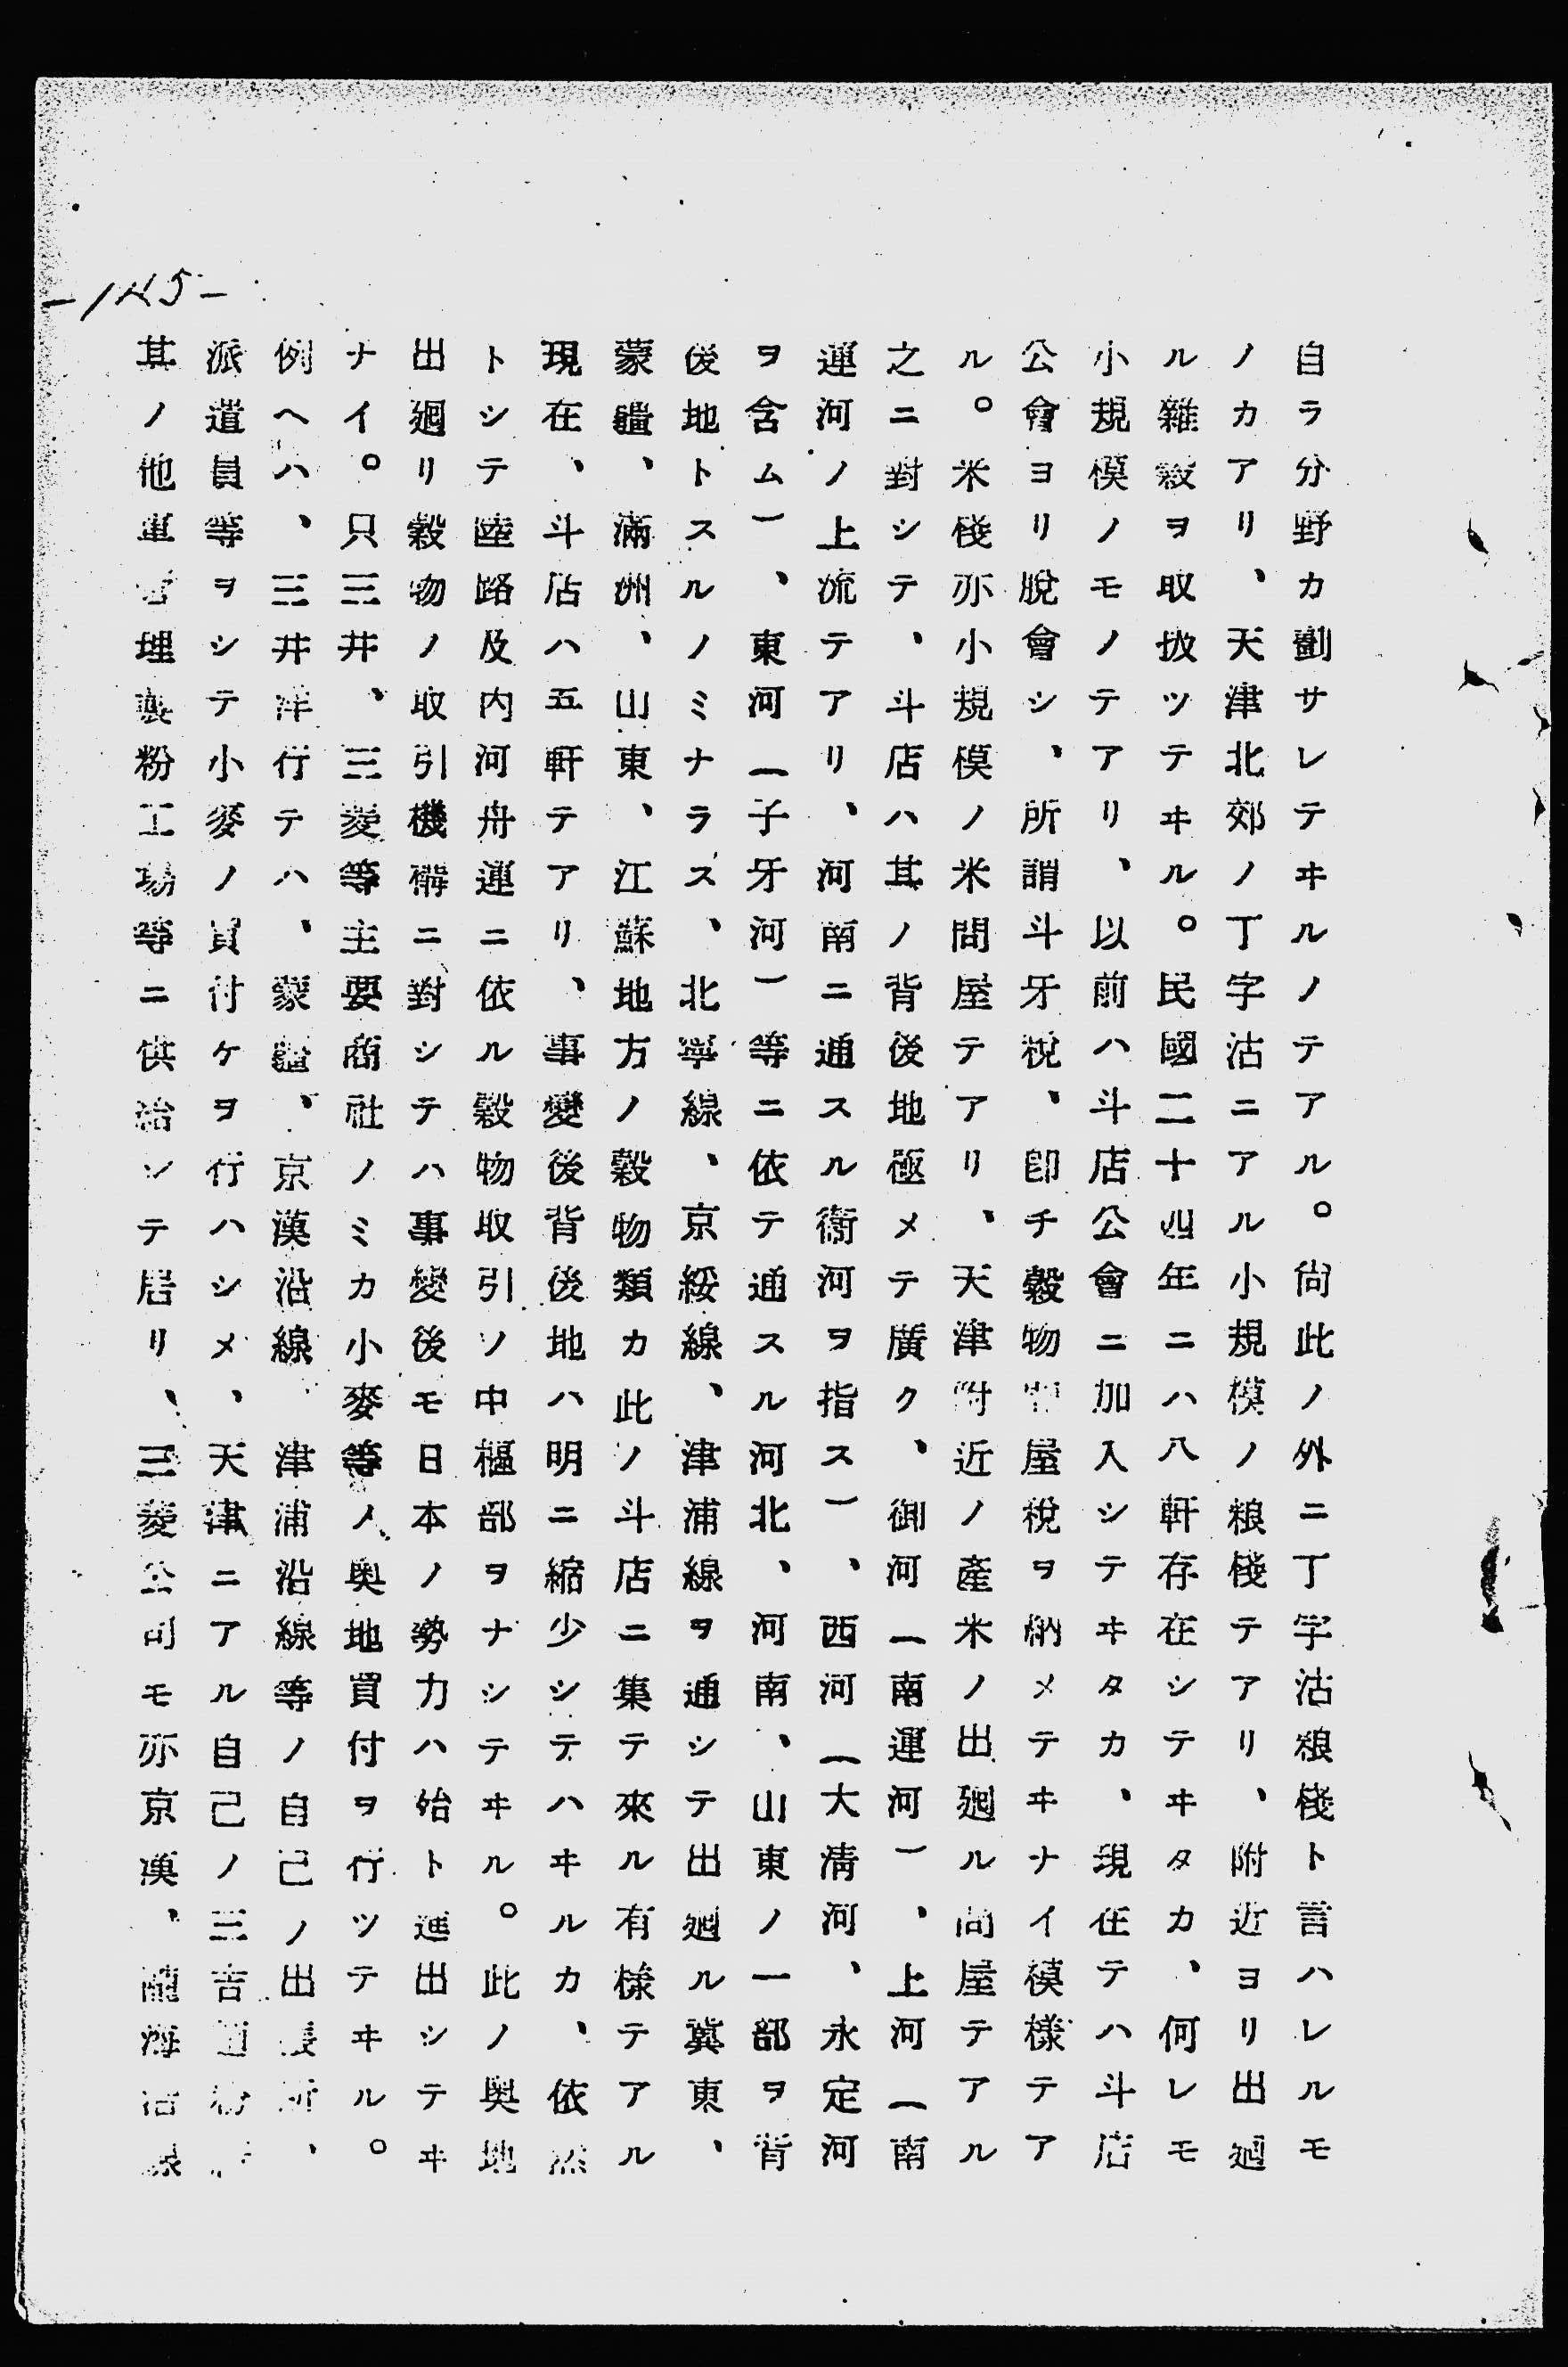 -145-
自ラ分野カ劃サレテヰルノテアル。尙此ノ外ニ丁字沽粮棧ト言ハレルモ
ノカアリ、天津北郊ノ丁字沽ニアル小規模ノ粮棧テアリ、附近ヨリ出廻
ル雜穀ヲ取扱ツテヰル。民國二十四年ニハ八軒存在シテヰタカ、何レモ
小規模ノモノテアリ、以前ハ斗店公會ニ加入シテヰタカ、現在テハ斗店
公會ヨリ脫會シ、所謂斗牙稅、卽チ穀物牙屋稅ヲ納メテヰナイ模樣テア
ル。米棧亦小規模ノ米問屋テアリ、天津附近ノ產米ノ出廻ル問屋テアル
之ニ對シテ、斗店ハ其ノ背後地極メテ廣ク、御河(南運河)、上河(南
運河ノ上流テアリ、河南ニ通スル衞河ヲ指ス)、西河(大淸河、永定河
ヲ含ム)、東河(子牙河)等ニ依テ通スル河北、河南、山東ノ一部ヲ背
後地トスルノミナラス、北寧線、京綏線、津浦線ヲ通シテ出廻ル冀東、
蒙疆、滿洲、山東、江蘇地方ノ穀物類カ此ノ斗店ニ集テ來ル有樣テアル
現在、斗店ハ五軒テアリ、事變後背後地ハ明ニ縮少シテハヰルカ、依然
トシテ陸路及內河舟運ニ依ル穀物取引ソ中樞部ヲナシテヰル。此ノ奧地
出廻リ穀物ノ取引機構ニ對シテハ事變後モ日本ノ勢力ハ始ト進出シテヰ
ナイ。只三井、三菱等主要商社ノミカ小麥等ノ奧地買付ヲ行ツテヰル。
例ヘハ、三井洋行テハ、蒙疆、京漢沿線、津浦沿線等ノ自己ノ出張所、
派遣員等ヲシテ小麥ノ買付ケヲ行ハシメ、天津ニアル自己ノ三吉
其ノ他軍管理製粉工場等ニ供給シテ居リ、三菱公司モ亦京漢、隴海沿線